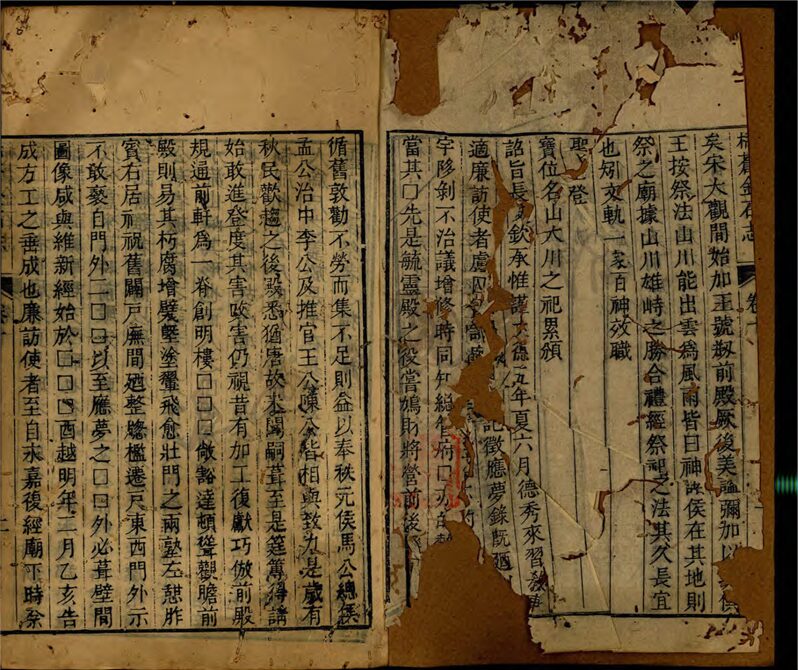 栝蒼金石志 卷十
矣宋大觀間始加王號剏前殿厥後美諡彌加以侯
王按祭法山川能出雲爲風雨皆曰神諸侯在其地則
祭之廟據山川雄峙之勝合禮經祭祀之法其久長宜
也矧文軌一家百神效職
聖 登
寶位名山大川之祀累頒
詔旨長 欽承惟謹大德五年夏六月德秀來習教事
適廉訪使者 記徵應夢錄既廼
宇陊剝不治議增修時同知總管府□
當其□先是毓靈殿之役嘗鳩財將營前後
循舊敦勸不勞而集不足則益以奉秩亢侯馬公總僕
孟公治中李公及推官王公陳公皆相與致力是歲有
秋民歡趨之後設悉猶唐故末閱嗣葺至是筵簿得講
始敢進登度其害改害仍視昔有加工復獻巧倣前殿
規通前軒爲一脊創明樓□□□敞豁達頓聳觀瞻前
殿則易其朽腐增甓墍塗翬飛愈壯門之兩塾左憇胙
賓右居祠祝舊闢戶廡間廼整牕檻遷戶東西門外示
不敢褻自門外二□□以至應夢之□□外必葺壁間
圖像咸與維新經始於□□□酉越明年二月乙亥告
成方工之垂成也廉訪使者至自永嘉復經廟下時奈